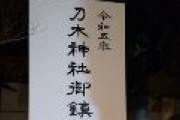 令和五年
乃木神社御鎮